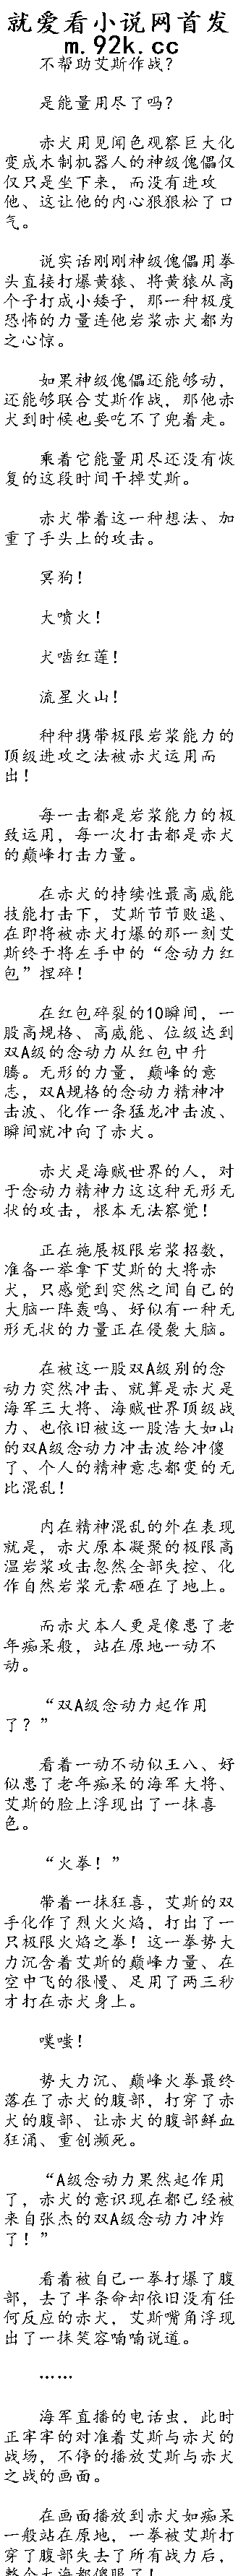 就爱看小说网首发
m.92k.cc
不帮助艾斯作战？
是能量用尽了吗？
赤犬用见闻色观察巨大化
变成木制机器人的神级傀儡仅
仅只是坐下来，而没有进攻
他、这让他的内心狠狠松了口
气。
说实话刚刚神级傀儡用拳
头直接打爆黄猿、将黄猿从高
个子打成小矮子，那一种极度
恐怖的力量连他岩浆赤犬都为
之心惊。
如果神级傀儡还能够动，
还能够联合艾斯作战，那他赤
犬到时候也要吃不了兜着走。
乘着它能量用尽还没有恢
复的这段时间干掉艾斯。
赤犬带着这一种想法、加
重了手头上的攻击。
冥狗！
大喷火！
犬啮红莲！
流星火山！
种种携带极限岩浆能力的
顶级进攻之法被赤犬运用而
出！
每一击都是岩浆能力的极
致运用，每一次打击都是赤犬
的巅峰打击力量。
在赤犬的持续性最高威能
技能打击下，艾斯节节败退、
在即将被赤犬打爆的那一刻艾
斯终于将左手中的“念动力红
包”捏碎！
在红包碎裂的10瞬间，一
股高规格、高威能、位级达到
双A级的念动力从红包中升
腾。无形的力量，巅峰的意
志，双A规格的念动力精神冲
击波、化作一条猛龙冲击波、
瞬间就冲向了赤犬。
赤犬是海贼世界的人，对
于念动力精神力这这种无形无
状的攻击，根本无法察觉！
正在施展极限岩浆招数，
准备一举拿下艾斯的大将赤
犬，只感觉到突然之间自己的
大脑一阵轰鸣、好似有一种无
形无状的力量正在侵袭大脑。
在被这一股双A级别的念
动力突然冲击、就算是赤犬是
海军三大将、海贼世界顶级战
力、也依旧被这一股浩大如山
的双A级念动力冲击波给冲傻
了、个人的精神意志都变的无
比混乱！
内在精神混乱的外在表现
就是，赤犬原本凝聚的极限高
温岩浆攻击忽然全部失控、化
作自然岩浆元素砸在了地上。
而赤犬本人更是像患了老
年痴呆般，站在原地一动不
动。
“双A级念动力起作用
了？”
看着一动不动似王八、好
似患了老年痴呆的海军大将、
艾斯的脸上浮现出了一抹喜
色。
“火拳！”
带着一抹狂喜，艾斯的双
手化作了烈火火焰，打出了一
只极限火焰之拳！这一拳势大
力沉含着艾斯的巅峰力量、在
空中飞的很慢、足用了两三秒
才打在赤犬身上。
噗嗤！
势大力沉、巅峰火拳最终
落在了赤犬的腹部，打穿了赤
犬的腹部、让赤犬的腹部鲜血
狂涌、重创濒死。
“A级念动力果然起作用
了，赤犬的意识现在都已经被
来自张杰的双A级念动力冲炸
了！”
看着被自己一拳打爆了腹
部，去了半条命却依旧没有任
何反应的赤犬，艾斯嘴角浮现
出了一抹笑容喃喃说道。
……
海军直播的电话虫，此时
正牢牢的对准着艾斯与赤犬的
战场，不停的播放艾斯与赤犬
之战的画面。
在画面播放到赤犬如痴呆
一般站在原地，一拳被艾斯打
穿了腹部失去了所有战力后，
整个大海都傻眼了！